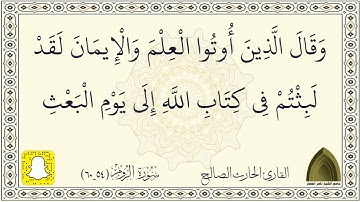 وَقَالَ الَّذِينَ أُوتُوا الْعِلْمَ وَالْإِيمَانَ لَقَدْ
لَبِثْتُمْ فِى كِتَابِ اللَّهِ إِلَى يَوْمِ الْبَعْثِ
القارئ الحارث الصالح
سُورَةُ الرُّومِ (٥٤ـ٦٠)